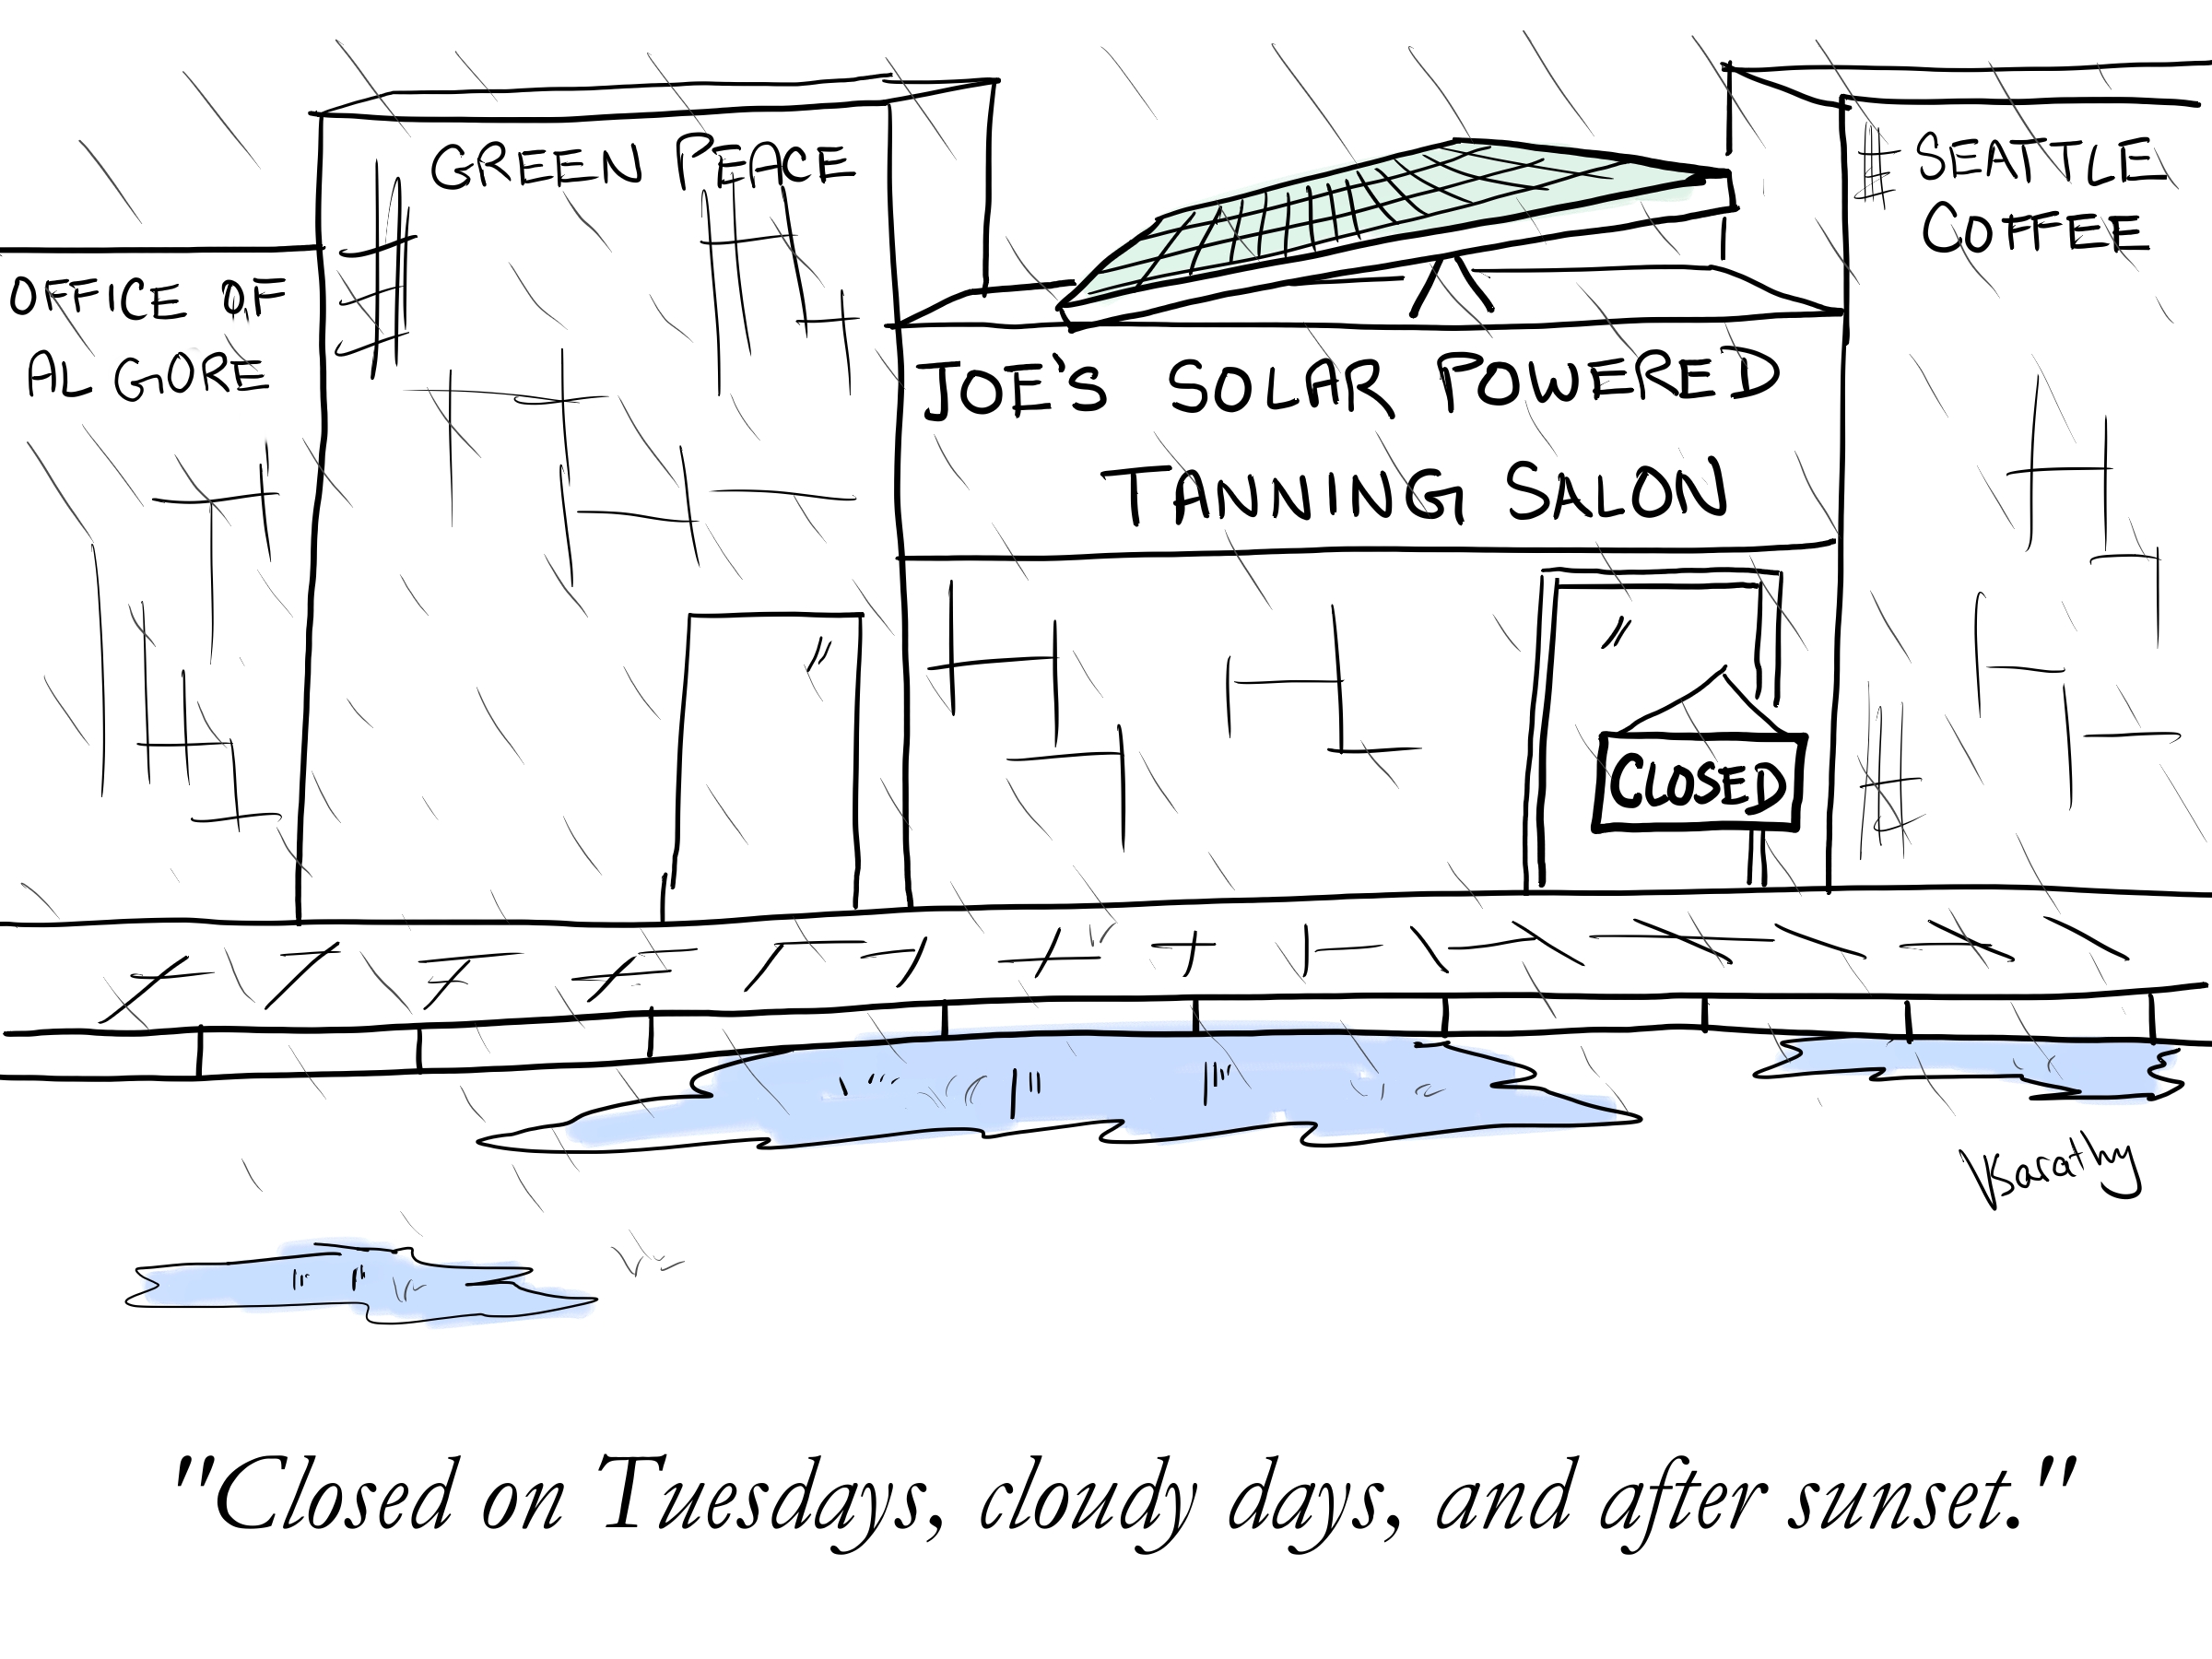 GREEN PEACE
OFFICE OF
AL GORE
JOE'S SOLAR POWERED
TANNING SALON
SEATTLE
COFFEE
CLOSED
VKSarathy
"Closed on Tuesdays, cloudy days, and after sunset."